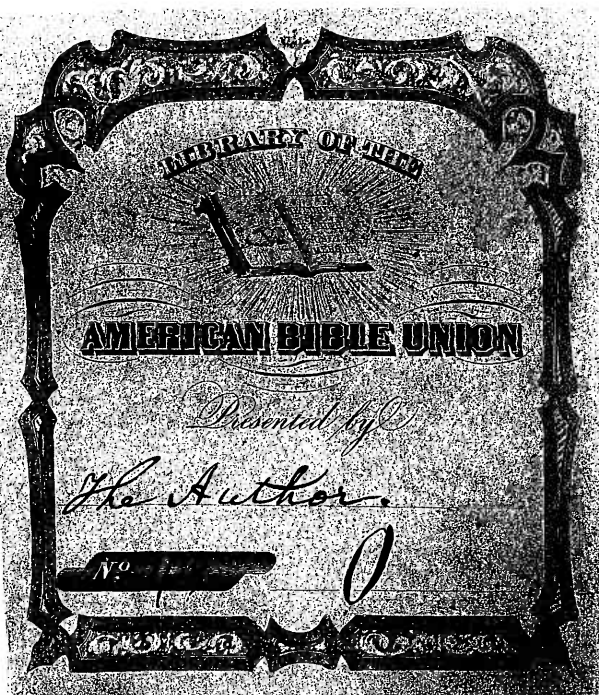 LIBRARY OF THE
AMERICAN BIBLE UNION
Presented by
The Author.
No.